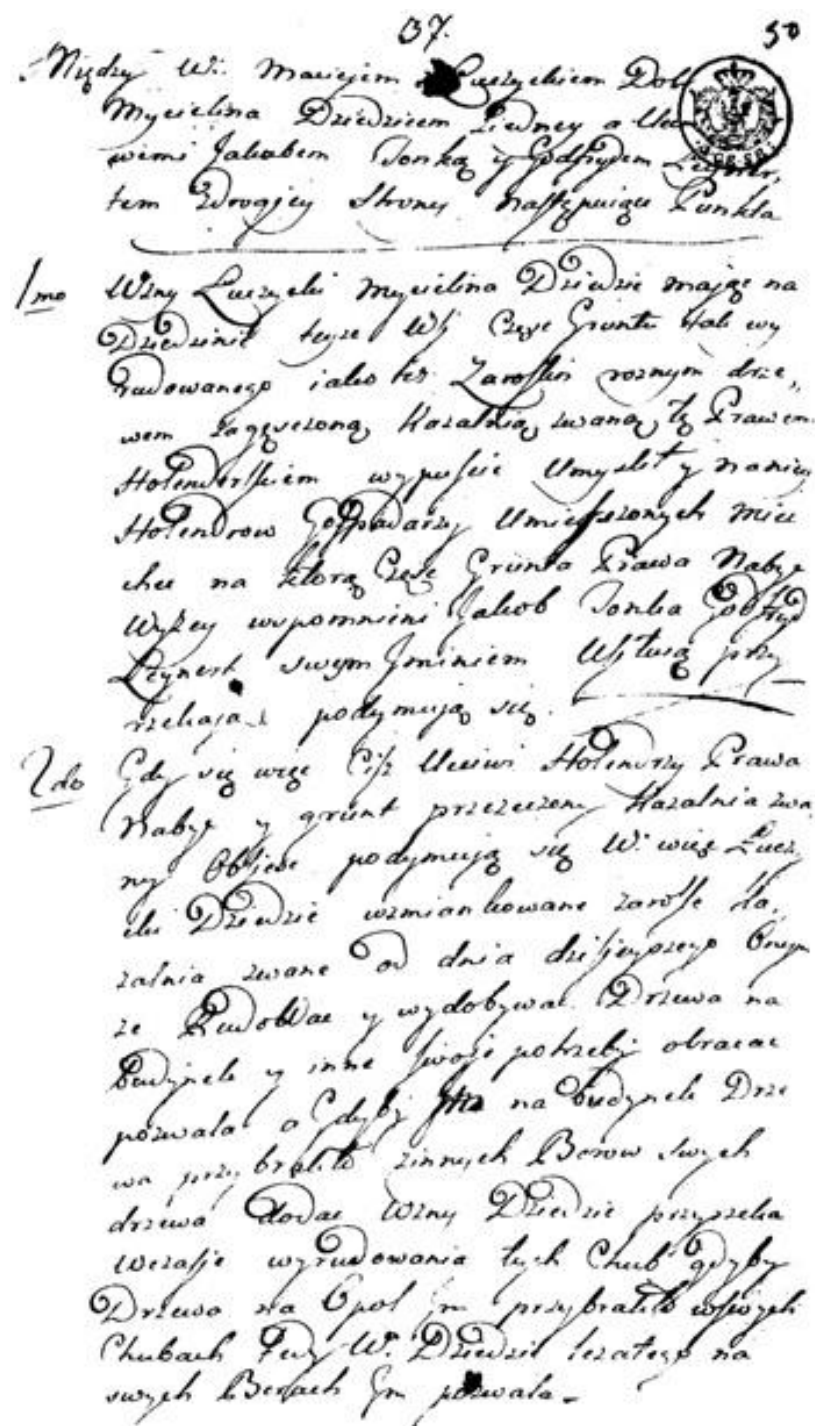 37. 50
Między W: Maciejem Łuczyckiem Dob
Mycielina Dziedzicem z Jedney a Ucc
wemi Jakubem Jonką y Godfrydem
tem Zdrugiey Strony następuiące Punkta
1mo Wżny Łuczycki Mycielina Dziedzic mając na
Dziedzinie teyże Wsi Częsc Gruntu tak wy
rudowanego iako też Zaroslin roznym drze,
wem zagęszczoną, Kazalnią zwaną, tę Prawem
Holenderskiem wypuscic Umyslił y naniey
Holendrow Gospodarzy Umieszczonych miec
chce na ktorą Częsc Grunta Prawa Nabyc
Wyżey wspomnieni Jakob Jonka Godfryd
Leynert swym Imieniem przy
rzekają podymują się.
2do Gdy się więc Ciż Ucciwi Holendrzy Prawa
Nabyc y grunt przerzeczony Kazalnia zwa
ny Objąc podymują się W. więc Łuczy
cki Dziedzic wzmiankowane zarosle Ka,
zalnia zwane od dnia dzisieyszego Onym
ze y wydobywac Drzewa na
Budynek y inne swoje potrzeby obracac
pozwala a Gdyby na budynek Drze
wa przybrakło zinnych Borow swych
drzewa dodac Wżny Dziedzic przyrzeka
Wczasie wyrudowania tych Chub gdyby
Drzewa na Opał Im przybrakło wswych
Chubach Tedy W. Dziedzic lezałego na
swych Borach Im pozwala